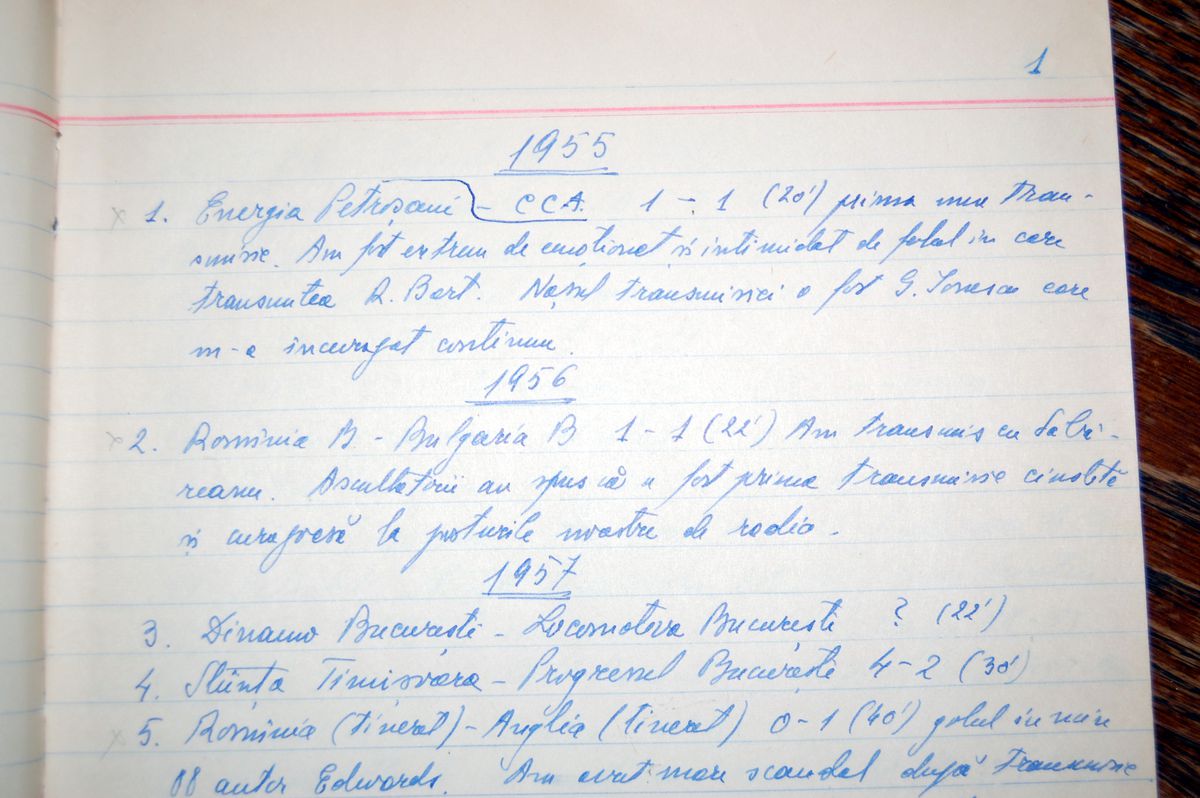 1
1955
x 1. Energia Petroșani - CCA. 1 - 1 (20') prima mea tran-
smisie. Am fost extrem de emoționat și intimidat de felul in care
transmitea R. Bart. Nașul transmisiei a fost G. Ionescu care
m-a incurajat continuu.
1956
x 2. Rominia B - Bulgaria B 1 - 1 (22') Am transmis cu
reanu. Ascultătorii au spus că a fost prima transmisie cinstită
și curajoasă la posturile noastre de radio.
1957
3. Dinamo București - Locomotiva București ? (22')
4. Știința Timișoara - Progresul București 4 - 2 (30')
x 5. Rominia (tineret) - Anglia (tineret) 0 - 1 (40') golul in min
88 autor Edwards. Am avut mare scandal după transmisie